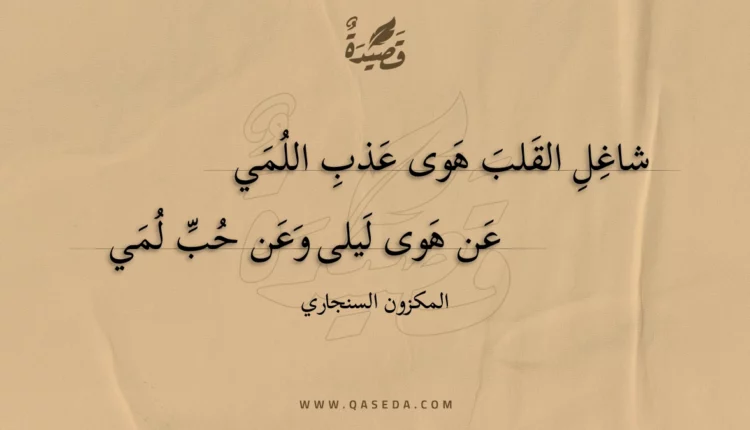 قَصِيدَةٌ
شاغِلِ القَلبَ هَوى عَذبِ اللُمَي
عَن هَوى لَيلى وَعَن حُبِّ لُمَي
المكزون السنجاري
WWW.QASEDA.COM